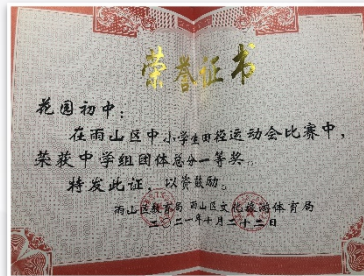 荣誉证书
花园初中：
在雨山区中小学生田径运动会比赛中，
荣获中学组团体总分一等奖。
特发此证，以资鼓励。
雨山区教育局 雨山区文化旅游体育局
二〇二一年十月二十二日